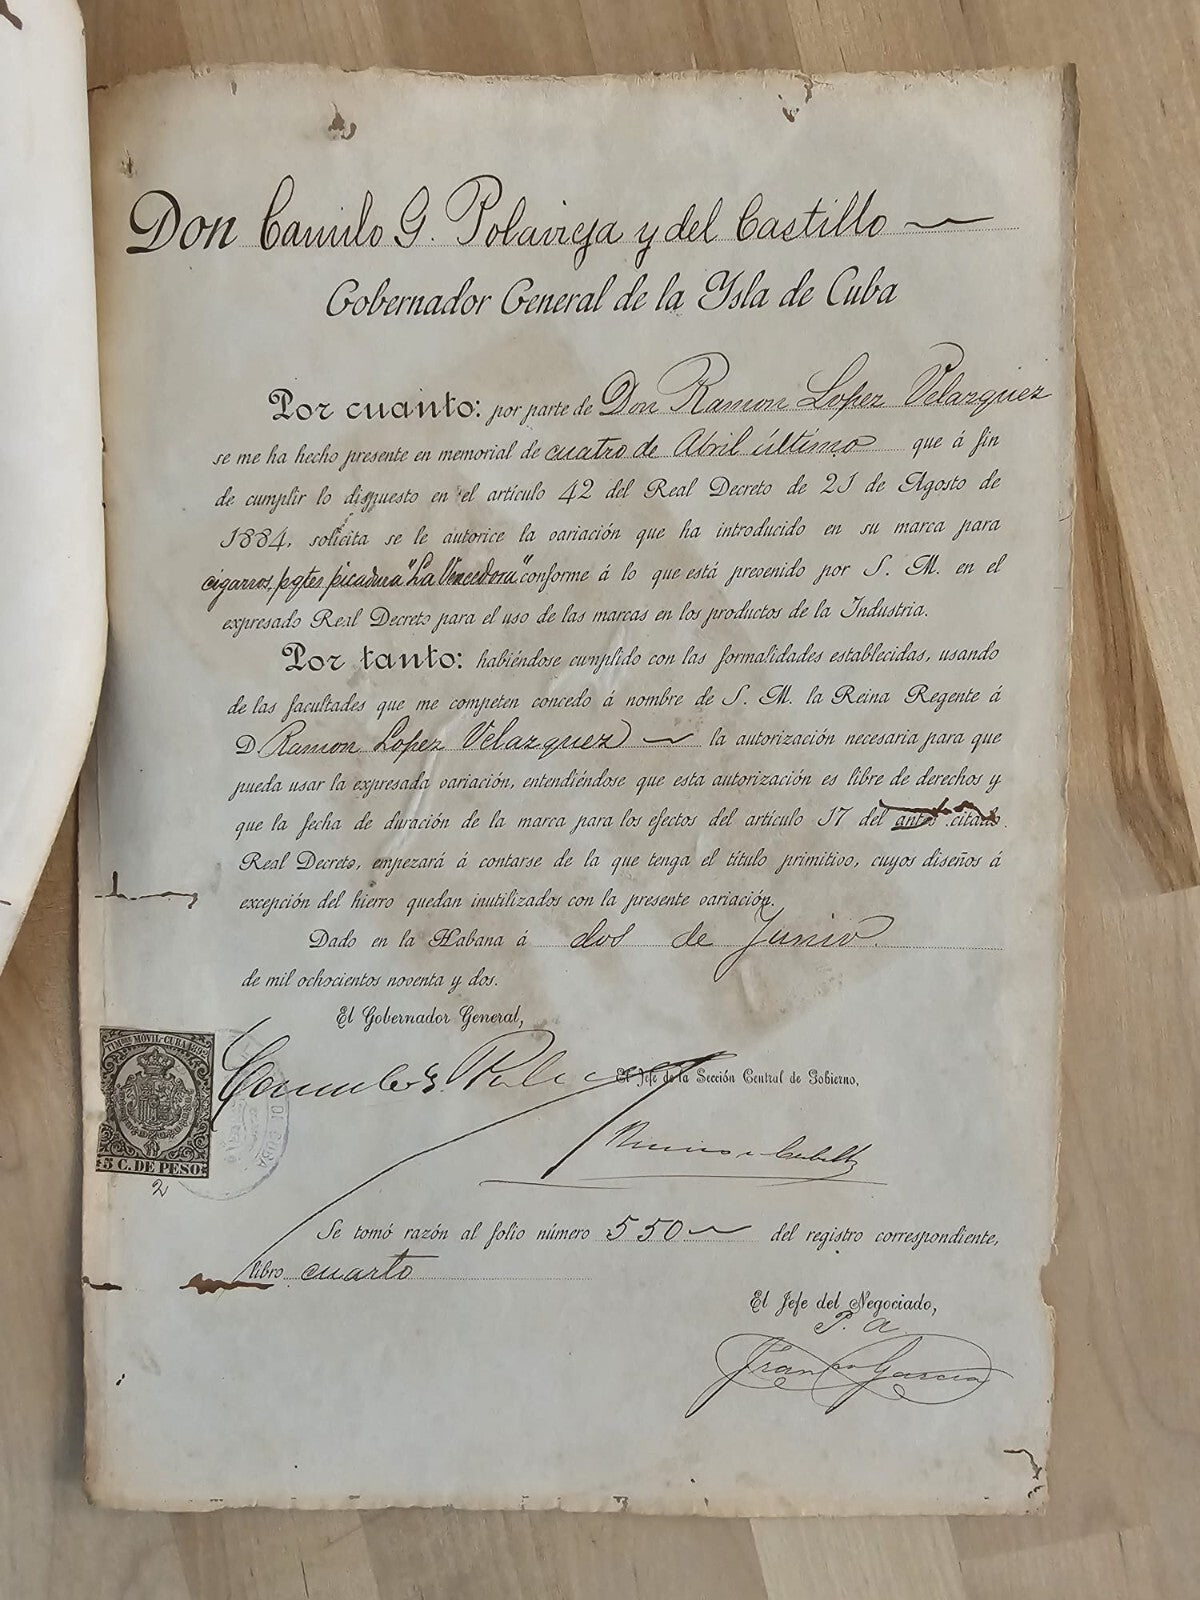 Don Camilo G. Polavieja y del Castillo
Gobernador General de la Ysla de Cuba
Por cuanto: por parte de Don Ramon Lopez Velazquez
se me ha hecho presente en memorial de cuatro de Abril último que á fin
de cumplir lo dispuesto en el artículo 42 del Real Decreto de 21 de Agosto de
1884, solicita se le autorice la variación que ha introducido en su marca para
cigarros, pqtes picadura "La Vencedora" conforme á lo que está prevenido por S. M. en el
expresado Real Decreto para el uso de las marcas en los productos de la Industria.
Por tanto: habiéndose cumplido con las formalidades establecidas, usando
de las facultades que me competen concedo á nombre de S. M. la Reina Regente á
D. Ramon Lopez Velazquez la autorización necesaria para que
pueda usar la expresada variación, entendiéndose que esta autorización es libre de derechos y
que la fecha de duración de la marca para los efectos del artículo 17 del antes citado
Real Decreto, empezará á contarse de la que tenga el título primitivo, cuyos diseños á
excepción del hierro quedan inutilizados con la presente variación.
Dado en la Habana á dos de Junio
de mil ochocientos noventa y dos.
El Gobernador General,
TIMBRE MÓVIL-CUBA 1892
Camilo G. Polavieja
El Jefe de la Sección Central de Gobierno,
5 C. DE PESO
2
Se tomó razón al folio número 550 del registro correspondiente,
libro cuarto
El Jefe del Negociado,
P. A
Franco Garcia